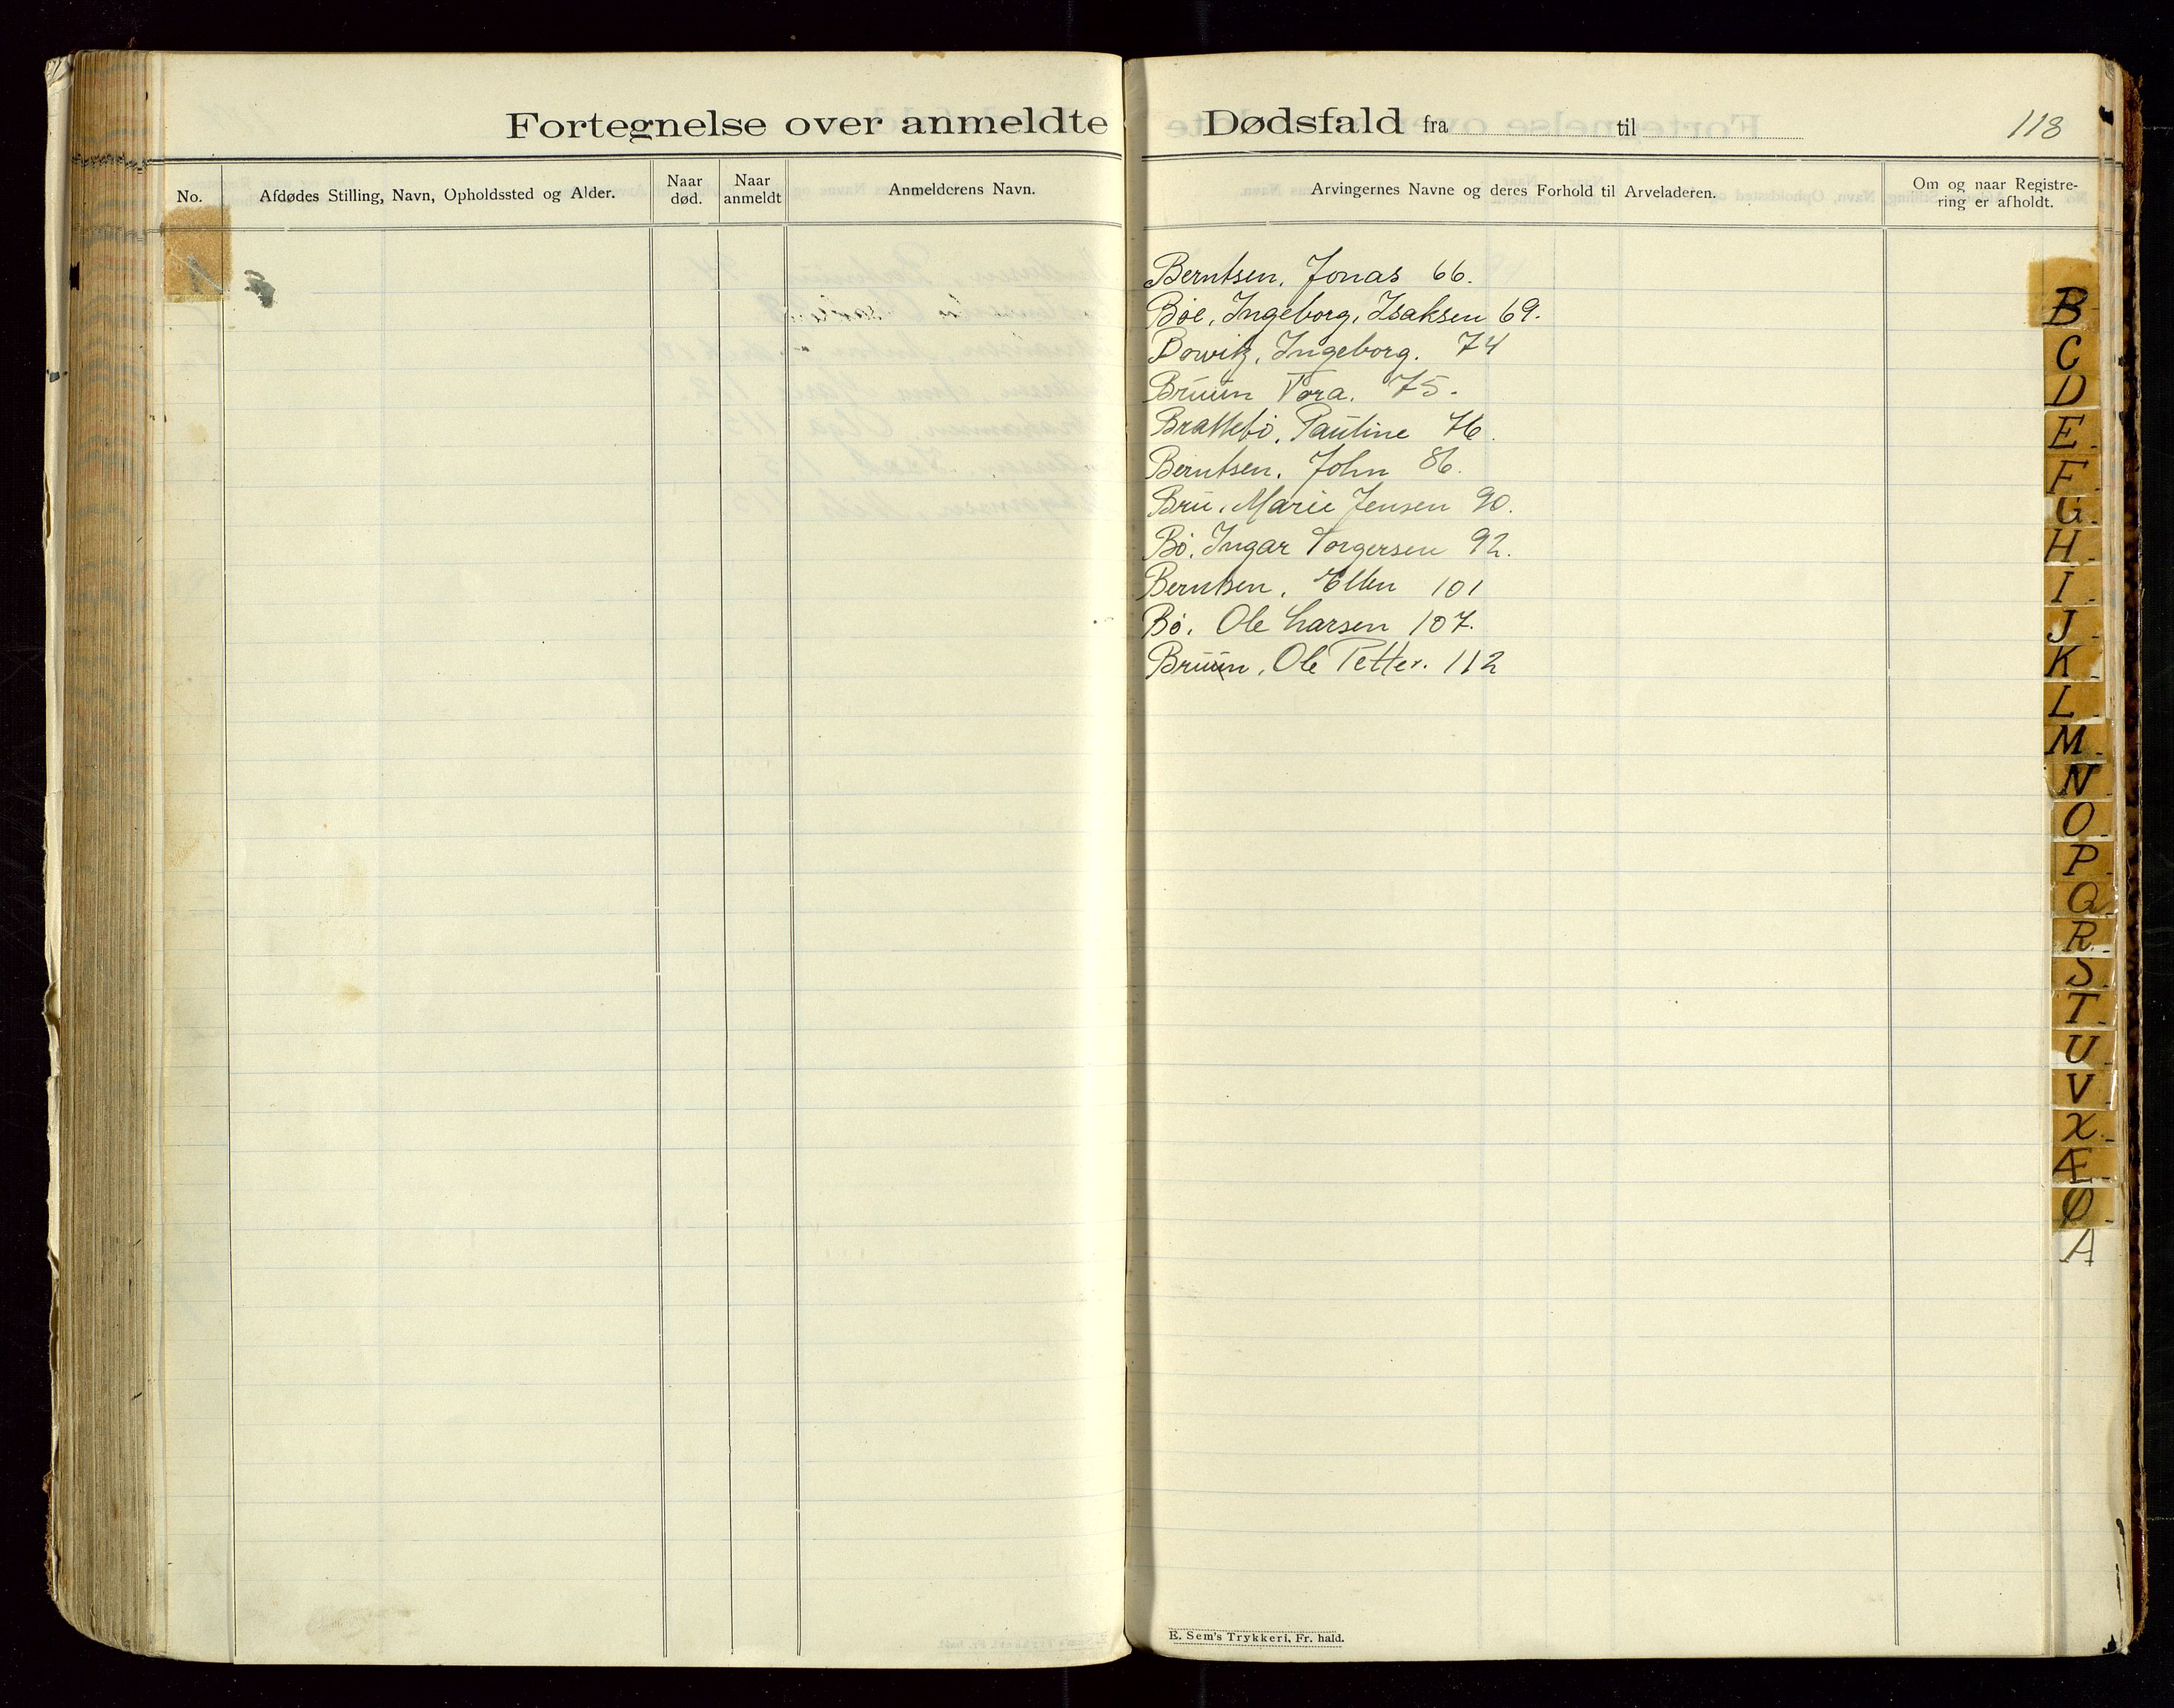 Fortegnelse over anmeldte Dødsfald fra til 118
No.
Afdødes Stilling, Navn, Opholdssted og Alder.
Naar død.
Naar anmeldt
Anmelderens Navn.
Arvingernes Navne og deres Forhold til Arveladeren.
Om og naar Registre-
ring er afholdt.
Berntsen, Jonas 66.
Bøe, Ingeborg, Isaksen 69.
Bowitz, Ingeborg. 74
Bruun Tora. 75.
Brattebø, Pauline 76.
Berntsen, John 86.
Bru, Marie Jensen 90.
Bø, Ingar Torgersen 92.
Berntsen, Ellen 101
Bø, Ole Larsen 107.
Bruun, Ole Petter. 112
B
C
D
E
F
G
H
I
J
K
L
M
N
O
P
Q
R
S
T
U
V
X
Æ
Ø
A
E. Sem's Trykkeri, Fr. hald.